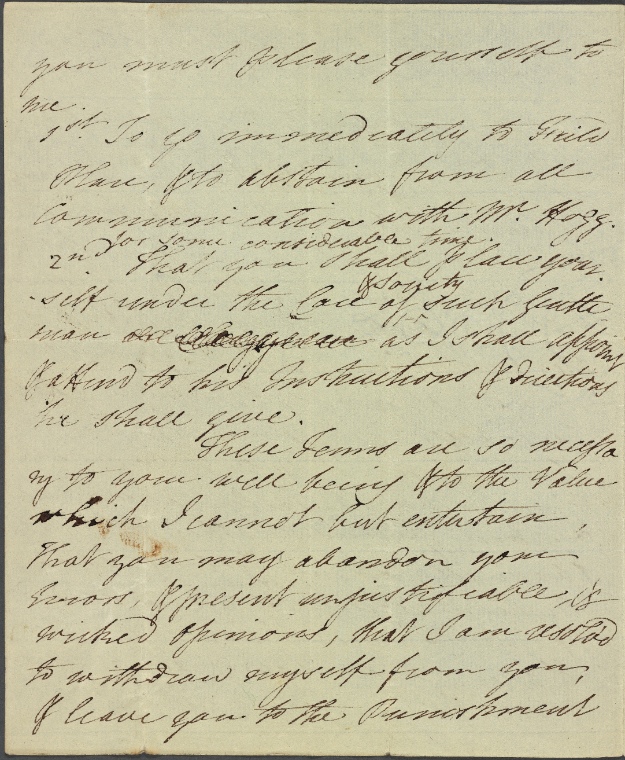 you must please yourself to
me.
1st To go immediately to Field
Place, & to abstain from all
Communication with Mr. Hogg.
for some considerable time.
2nd That you shall place your
& Society
self under the Care of such Gentle
man as I shall appoint
& attend to his Instructions & directions
he shall give.
These terms are so necessa
ry to your well being & to the Value
which I cannot but entertain,
that you may abandon your
Errors, & present unjustifiable, &
wicked opinions, that I am resolved
to withdraw myself from you,
& leave you to the Punishment